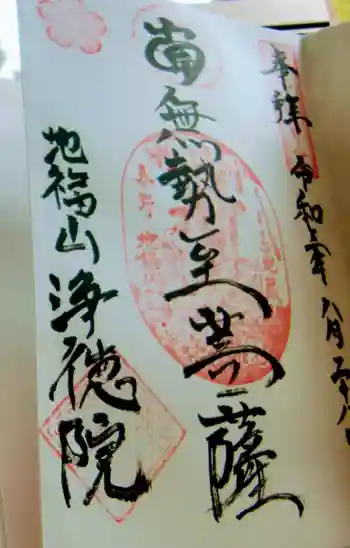 奉拝
令和三年八月二十八日
南無勢至菩薩
地福山浄徳院